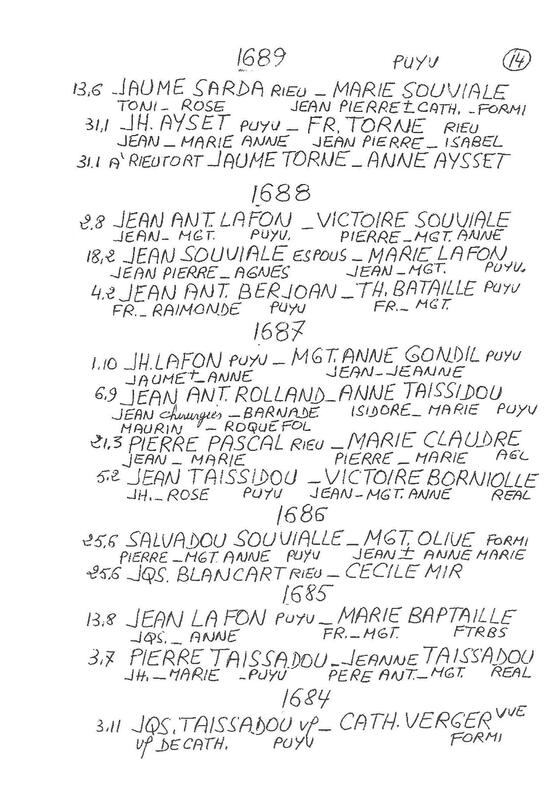 1689 PUYU 14
13,6 JAUME SARDA RIEU _ MARIE SOUVIALE
TONI _ ROSE JEAN PIERRE ± CATH. _ FORMI
31,1 JH. AYSET PUYU _ FR. TORNE RIEU
JEAN _ MARIE ANNE JEAN PIERRE _ ISABEL
31.1 A' RIEUTORT JAUME TORNE _ ANNE AYSSET
1688
2,8 JEAN ANT. LAFON _ VICTOIRE SOUVIALE
JEAN _ MGT. PUYU. PIERRE _ MGT. ANNE
18,2 JEAN SOUVIALE ESPOUS _ MARIE LAFON
JEAN PIERRE _ AGNES JEAN _ MGT. PUYU.
4,2 JEAN ANT. BERJOAN _ TH. BATAILLE PUYU
FR. _ RAIMONDE PUYU FR. _ MGT.
1687
1,10 JH. LAFON PUYU _ MGT. ANNE GONDIL PUYU
JAUME ± ANNE JEAN _ JEANNE
6,9 JEAN ANT. ROLLAND _ ANNE TAISSIDOU
JEAN chirurgien _ BARNADE ISIDORE _ MARIE PUYU
MAURIN _ ROQUEFOL
21,3 PIERRE PASCAL RIEU _ MARIE CLAUDRE
JEAN _ MARIE PIERRE _ MARIE AGL
5,2 JEAN TAISSIDOU _ VICTOIRE BORNIOLLE
JH. _ ROSE PUYU JEAN _ MGT. ANNE REAL
1686
25,6 SALVADOU SOUVIALLE _ MGT. OLIVE FORMI
PIERRE _ MGT. ANNE PUYU JEAN ± ANNE MARIE
25,6 JQS. BLANCART RIEU _ CECILE MIR
1685
13,8 JEAN LAFON PUYU _ MARIE BAPTAILLE
JQS. _ ANNE FR. _ MGT. FTRBS
3,7 PIERRE TAISSADOU _ JEANNE TAISSADOU
JH. _ MARIE _ PUYU PERE ANT. _ MGT. REAL
1684
3,11 JQS. TAISSADOU vf _ CATH. VERGER VVE
vf DE CATH. PUYU FORMI